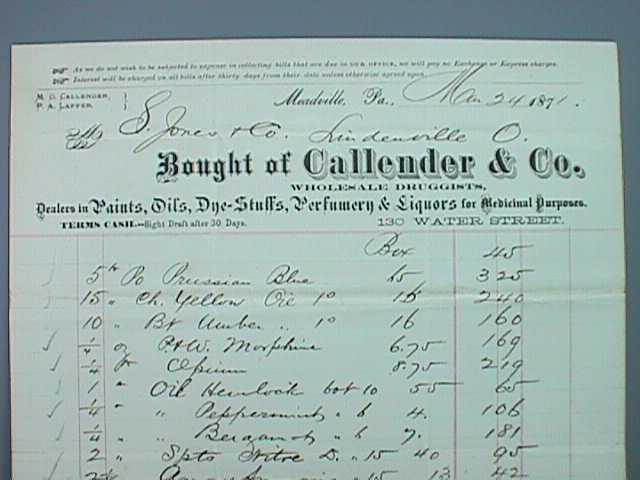 As we do not wish to be subjected to expense in collecting bills that are due in OUR OFFICE, we will pay no Exchange or Express charges.
Interest will be charged on all bills after thirty days from their date unless otherwise agreed upon.
M. C. CALLENDER,
P. A. LAFFER,
Meadville, Pa., Mar 24 1871.
M S. Jones & Co. Lindenville O.
Bought of Callender & Co.
WHOLESALE DRUGGISTS,
Dealers in Paints, Oils, Dye-Stuffs, Perfumery & Liquors for Medicinal Purposes.
TERMS CASH.—Sight Draft after 30 Days. 130 WATER STREET.
Box 45
5 lb Po Prussian Blue 65 325
15 " Ch. Yellow Oil 10 16 240
10 " Bt Umber " 10 16 160
1/4 oz P&W. Morphine 6.75 169
1/4 lb Opium 8.75 219
1 " Oil Hemlock bot 10 55 65
1/4 " " Peppermint " 6 4. 106
1/4 " " Bergamot " 6 7. 181
2 " Spts Nitre D. " 15 40 95
15 13 42